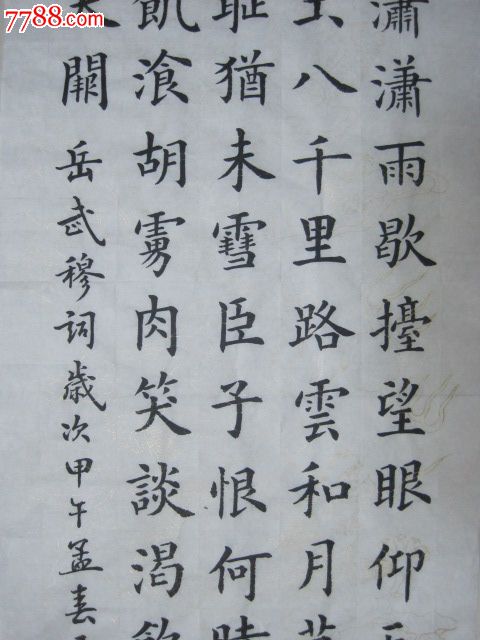 7788.com
瀟瀟雨歇擡望眼仰
土八千里路雲和月莫
耻猶未雪臣子恨何時
飢飡胡虜肉笑談渴飲
天闕 岳武穆詞歲次甲午孟春